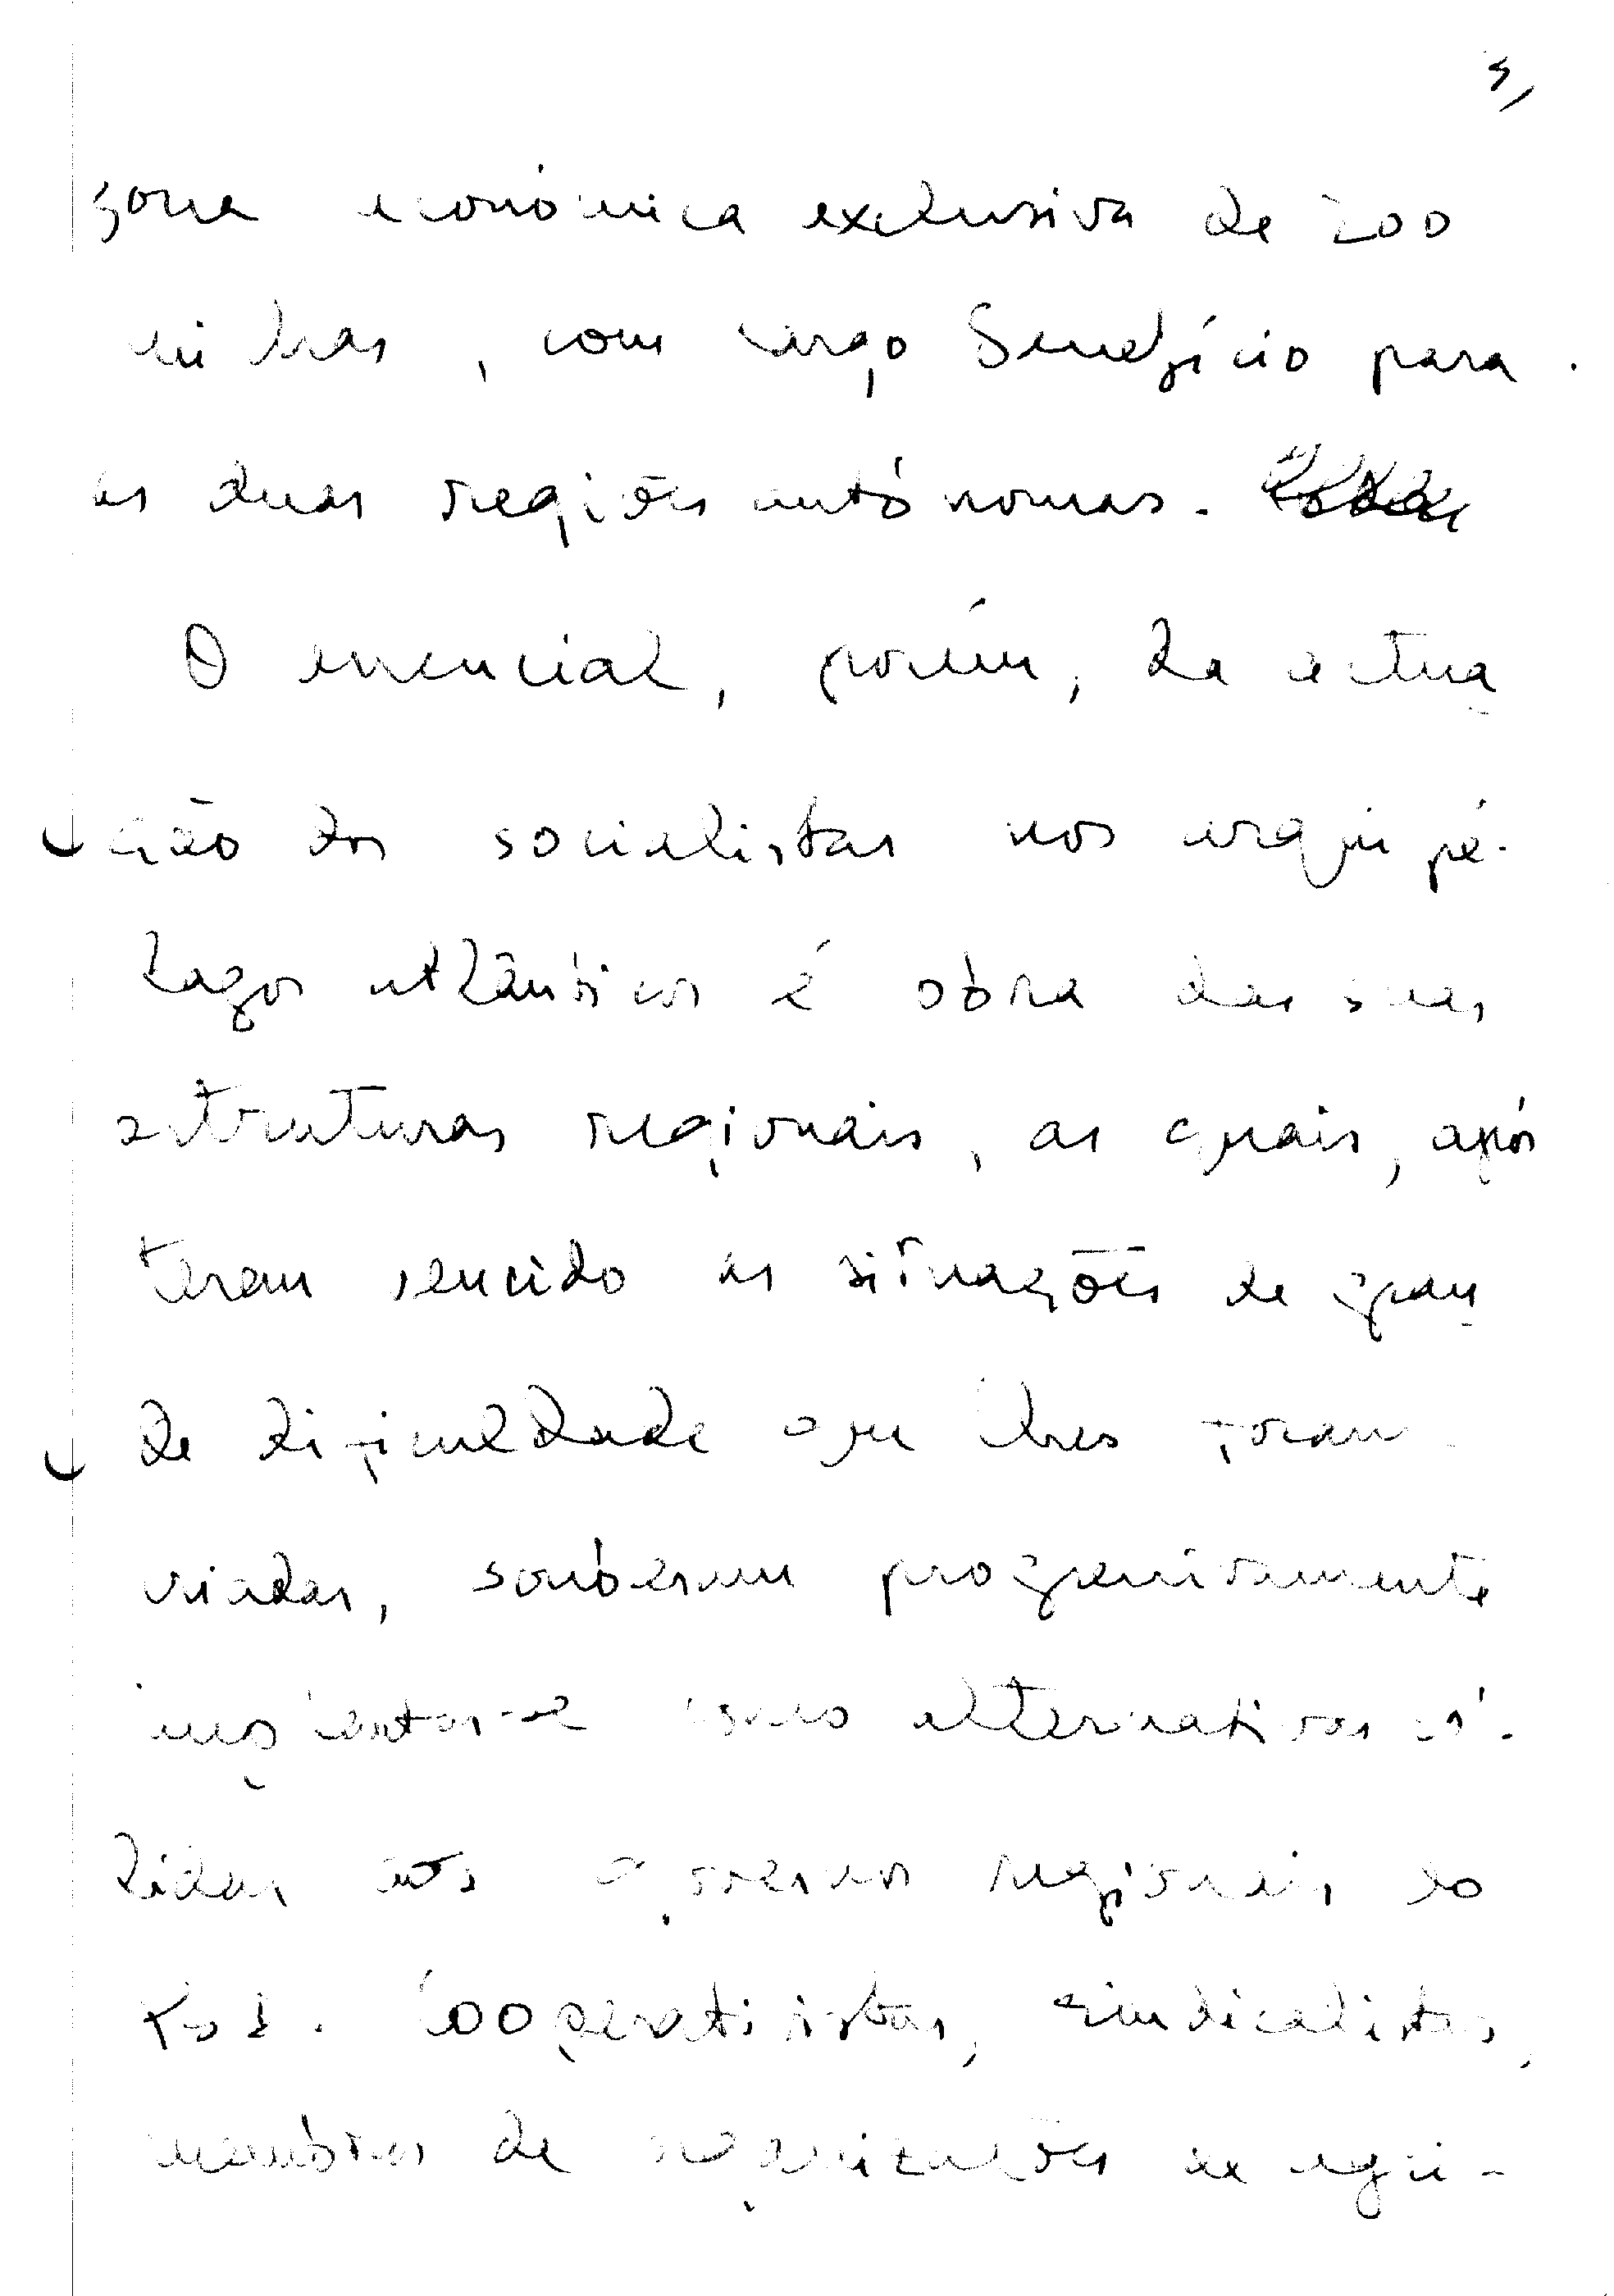 zona económica exclusiva de 200
milhas, com largo benefício para
as duas regiões autónomas.
O essencial, porém, da actua
ção dos socialistas nos arquipé-
lagos atlânticos é obra das suas
estruturas regionais, as quais, após
terem vencido as situações de gran
de dificuldade que lhes foram
criadas, souberam progressivamente
implantar-se como alternativas só-
lidas aos governos regionais do
PSD. Cooperativistas, sindicalistas,
membros de organizações de agri-